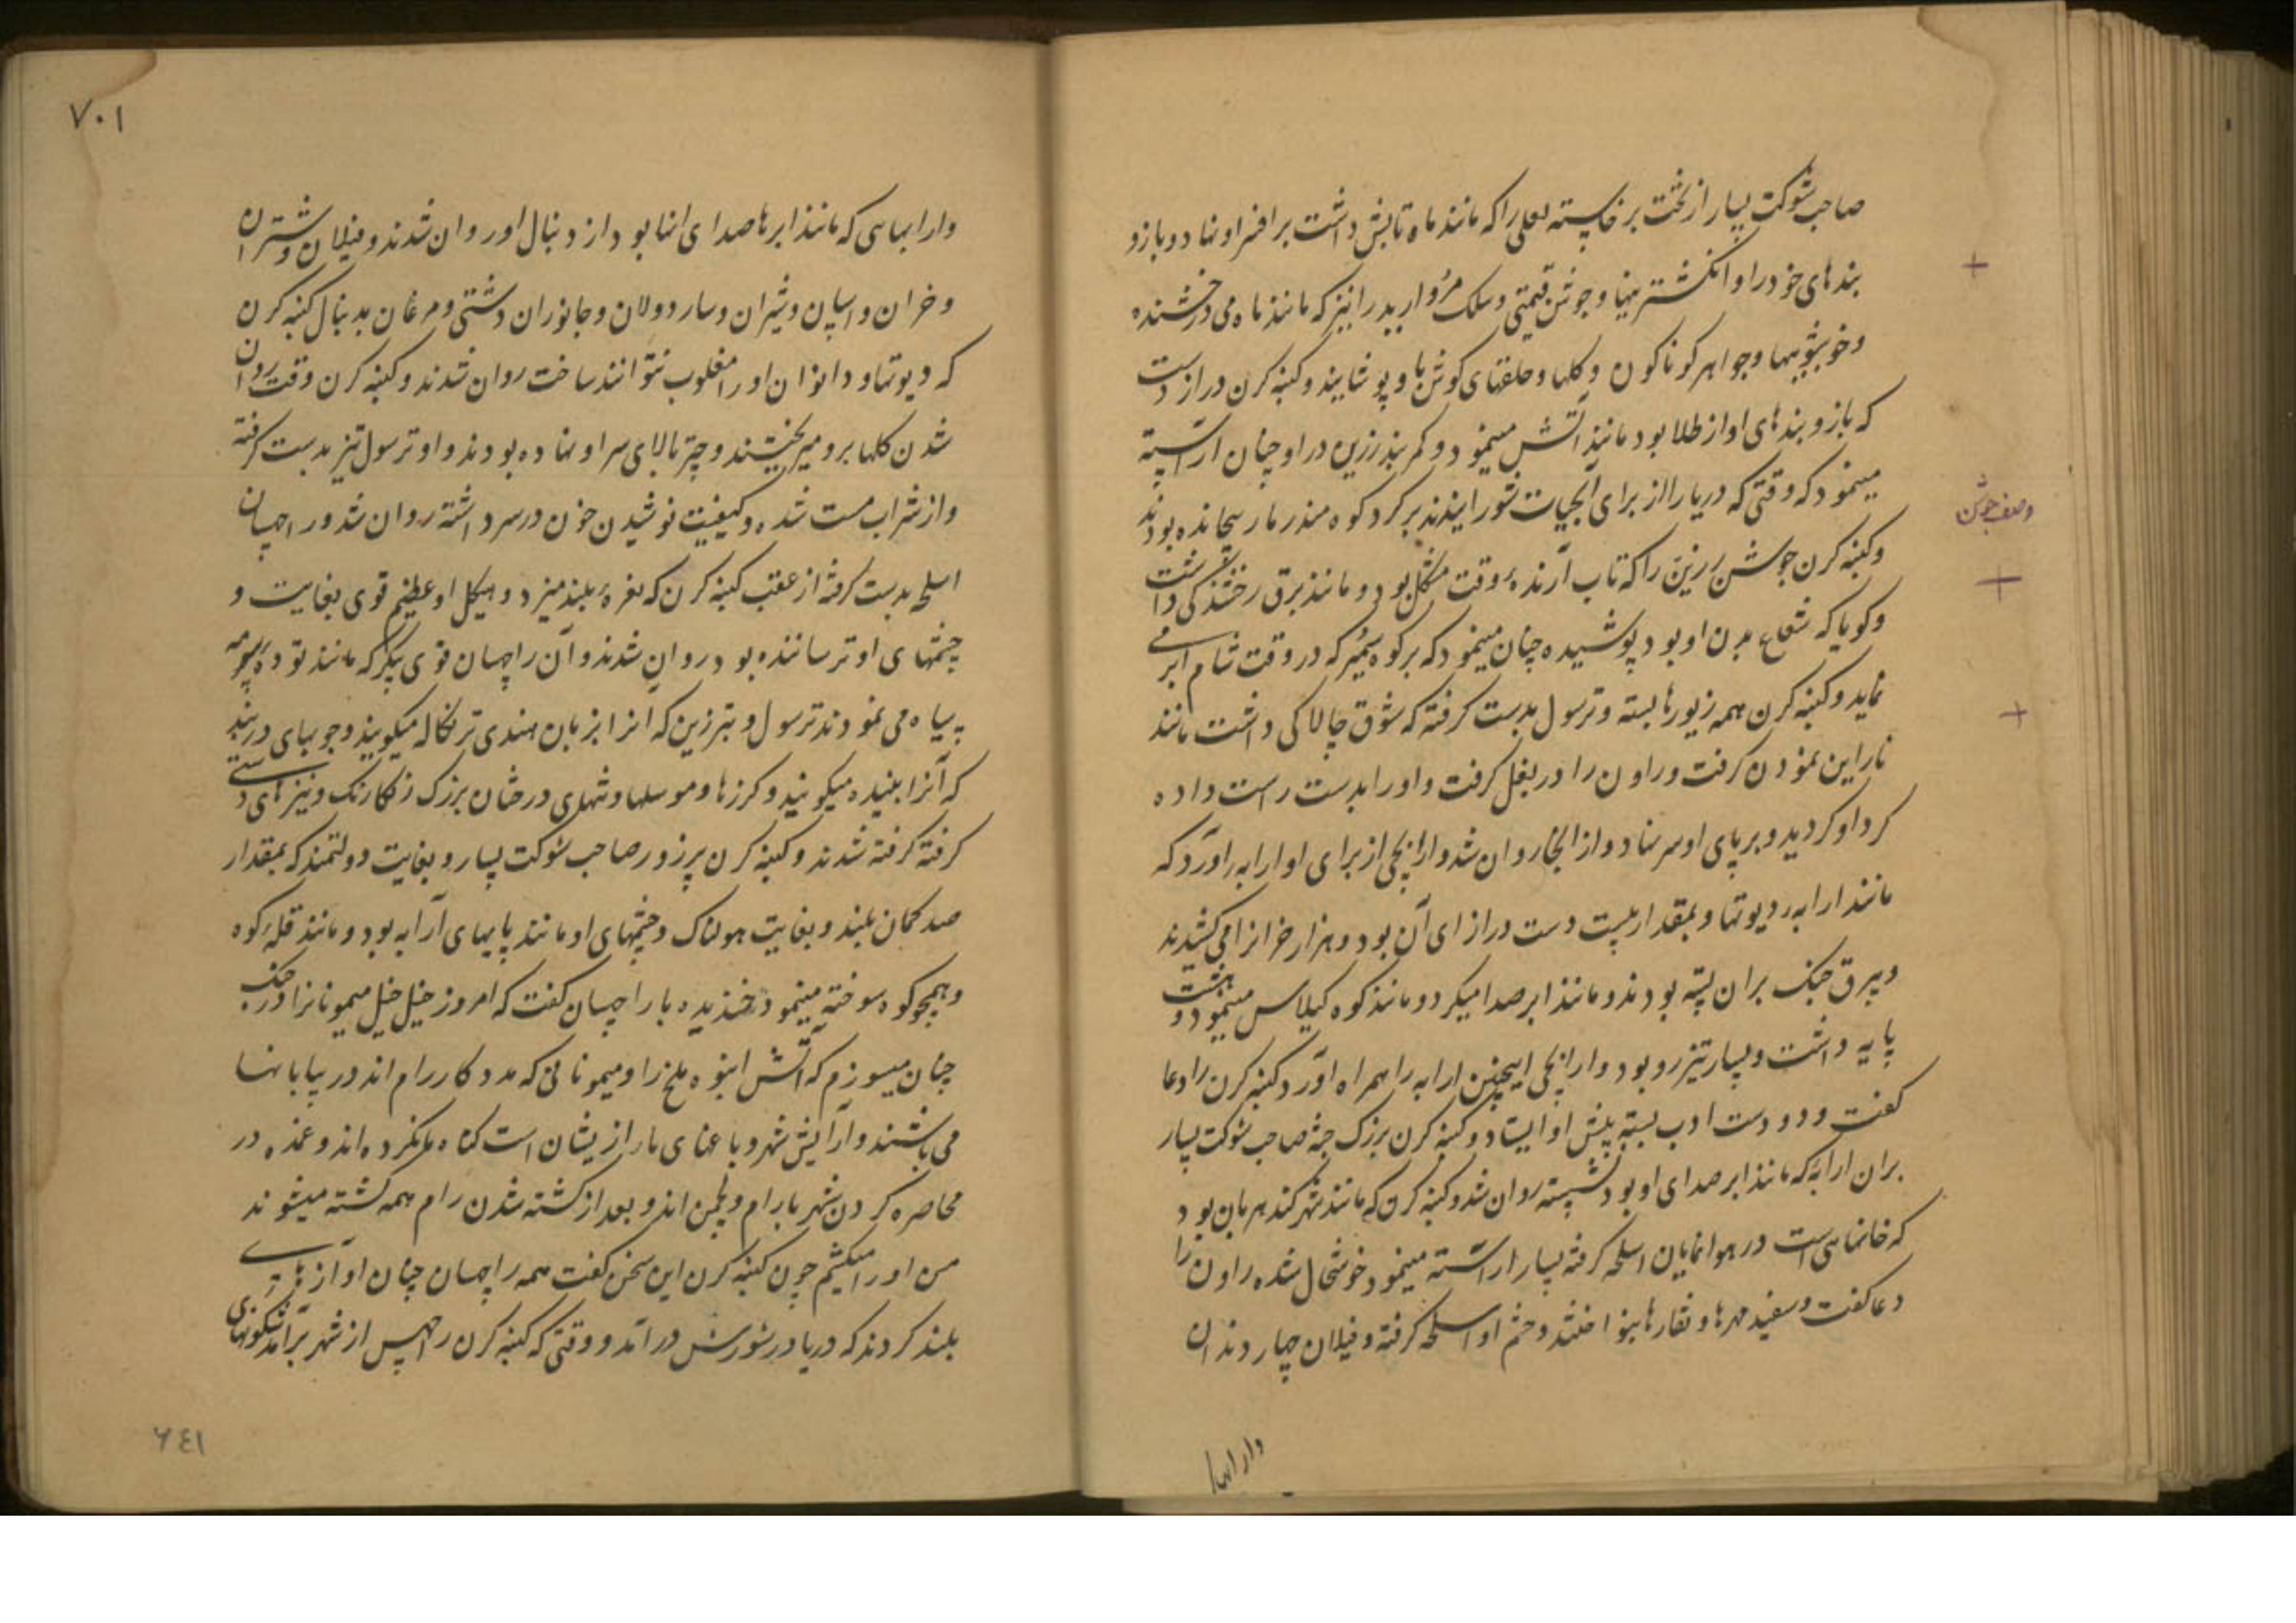 صاحب شوکت بسیار از تخت برخاسته لعلی را که مانند ماه تابش داشت بر افسر او نهاد و بازو
بندهای خود را و انگشتریها و جوشن قیمتی و سلک مروارید را نیز که مانند ماه می درخشنده
و خوشبوییها و جواهر کوناکون و کلها و حلقهای کوش باو پوشانید و کنبه کرن دراز دست
که بازوبندهای او از طلا بود مانند آتش مینمود و کمربند زرین در او چنان آراسته
مینمود که وقتی که دریا را از برای آبحیات شورانیدند بر کرد کوه مندر مار پیچانده بودند
و کنبه کرن جوشن زرین را که تاب آرندهٔ وقت مشکل بود و مانند برق رخشندگی داشت
و کویا که شعاع بدن او بود پوشیده چنان مینمود که بر کوه سمیر که در وقت شام ابر می
نماید و کنبه کرن همه زیورها بسته و ترسول بدست کرفته که شوق چالاکی داشت مانند
ناراین نمودن کرفت و راون را در بغل کرفت و او را بدست راست داده
کرد او کردید و بر پای او سر نهاد و از انجا روان شد و ارابچی از برای او ارابه را آورد که
مانند ارابه دیوتها و بمقدار بیست دست درازای آن بود و هزار خر انرا می کشیدند
و بیرق جنک بران بسته بودند و مانند ابر صدا میکرد و مانند کوه کیلاس مینمود و هشت
پایه داشت و بسیار تیزرو بود و ارابچی اینچنین ارابه را همراه آورد کنبه کرن را دعا
کفت و دو دست ادب بسته پیش او ایستاد و کنبه کرن بزرک جثه صاحب شوکت بسیار
بران ارابه که مانند ابر صدای او بود نشسته روان شد و کنبه کرن که مانند شهر کندهربان بود
که خانهاسی است در هوا نمایان اسلحه کرفته بسیار آراسته مینمود خوشحال شده راون را
دعا کفت و سفید مهرها و نقارها بنواختند و حشم او اسلحه کرفته و فیلان چهار دندان
وارابها
وصف جوشن
۷۰۱
وارابهاسی که مانند ابرها صدای انها بود از دنبال او روان شدند و فیلان و شتران
و خران و اسپان و شیران و ساردولان و جانوران دشتی و مرغان بدنبال کنبه کرن
که دیوتها و دانوان او را مغلوب نتوانند ساخت روان شدند و کنبه کرن وقت روان
شدن کلها برو میریختند و چتر بالای سر او نهاده بودند و او ترسول تیز بدست کرفته
و از شراب مست شده و کیفیت نوشیدن خون در سر داشته روان شد و راچهسان
اسلحه بدست کرفته از عقب کنبه کرن که نعرهٔ بلند میزد و هیکل او عظیم قوی بغایت و
چشمهای او ترساننده بود روان شدند و آن راچهسان قوی پیکر که مانند توده سرمه
سیاه می نمودند ترسول و تبرزین که انرا بزبان هندی ترنکاله میکویند و چوبهای دربند
که آنرا بلنیده میکویند و کرزها و موسلها و شهدی درختان بزرک زنکارنک و نیزهای دستی
کرفته کرفته شدند و کنبه کرن پرزور صاحب شوکت بسیار و بغایت دولتمند که بمقدار
صد کمان بلند و بغایت هولناک و چشمهای او مانند پایهای ارابه بود و مانند قلهٔ کوه
و همچو کوه سوخته مینمود خندیده با راچهسان کفت که امروز خیل خیل میمونانرا در جنک
چنان میسوزم که آتش انبوه ملخ را و میمونانی که مددکار رام اند در بیابانها
می باشند و آرایش شهر و باغهای ما از یشان است کناه ما نکرده اند و عمده در
محاصره کردن شهر ما رام و لچمن اند و بعد از کشته شدن رام همه کشته میشوند
من او را میکشم چون کنبه کرن این سخن کفت همه راچهسان چنان آوازهای
بلند کردند که دریا در شورش درآمد و وقتی که کنبه کرن راچهس از شهر برآمد شکونهای
۶۴۱